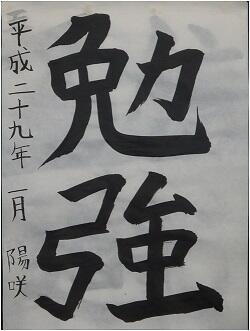 勉強
平成二十九年 一月 陽咲